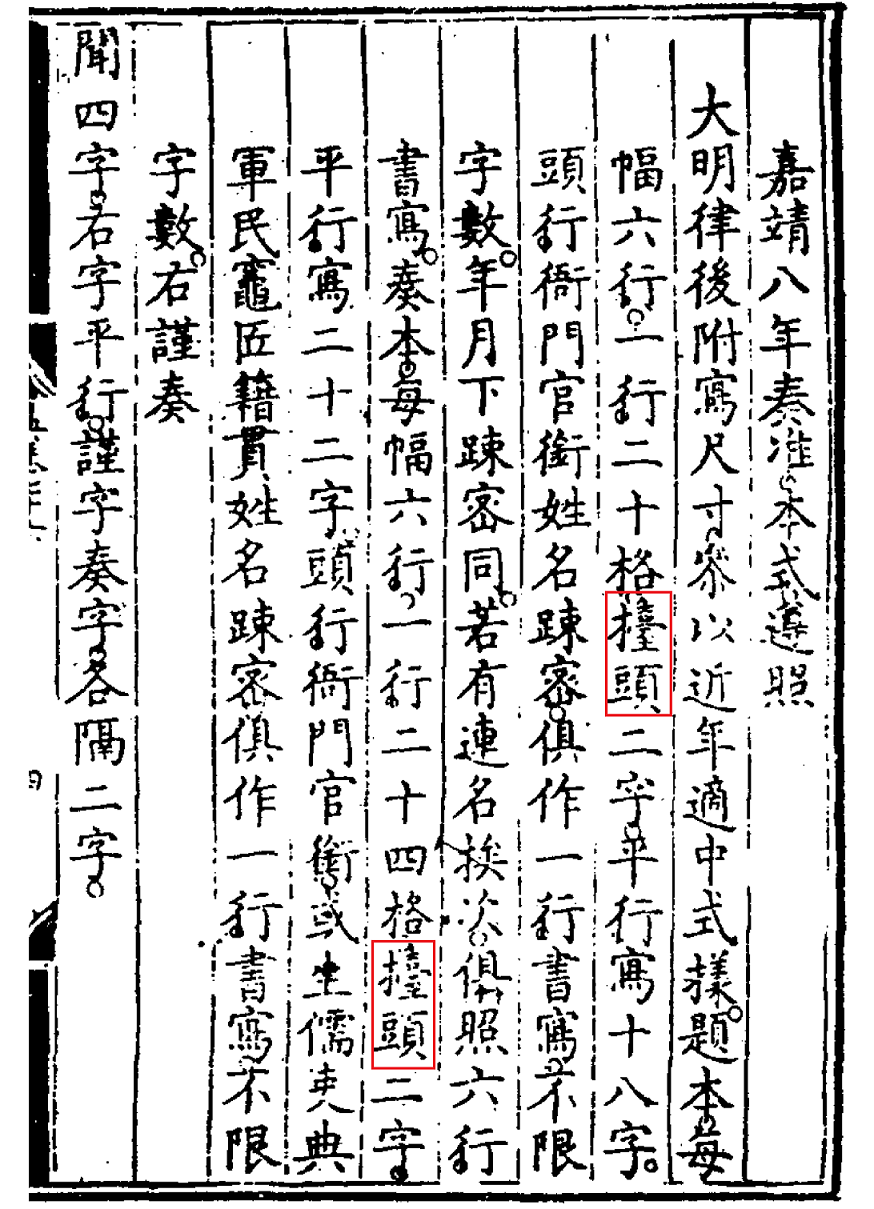 嘉靖八年奏准本式遵照
大明律後附寫尺寸叅以近年適中式㨾題本每
幅六行一行二十格擡頭二字平行寫十八字
頭行衙門官銜姓名踈密俱作一行書寫不限
字數年月下踈密同若有連名挨次俱照六行
書寫奏本每幅六行一行二十四格擡頭二字
平行寫二十二字頭行衙門官銜或生儒吏典
軍民竈匠籍貫姓名踈密俱作一行書寫不限
字數右謹奏
聞四字右字平行謹字奏字各隔二字
四